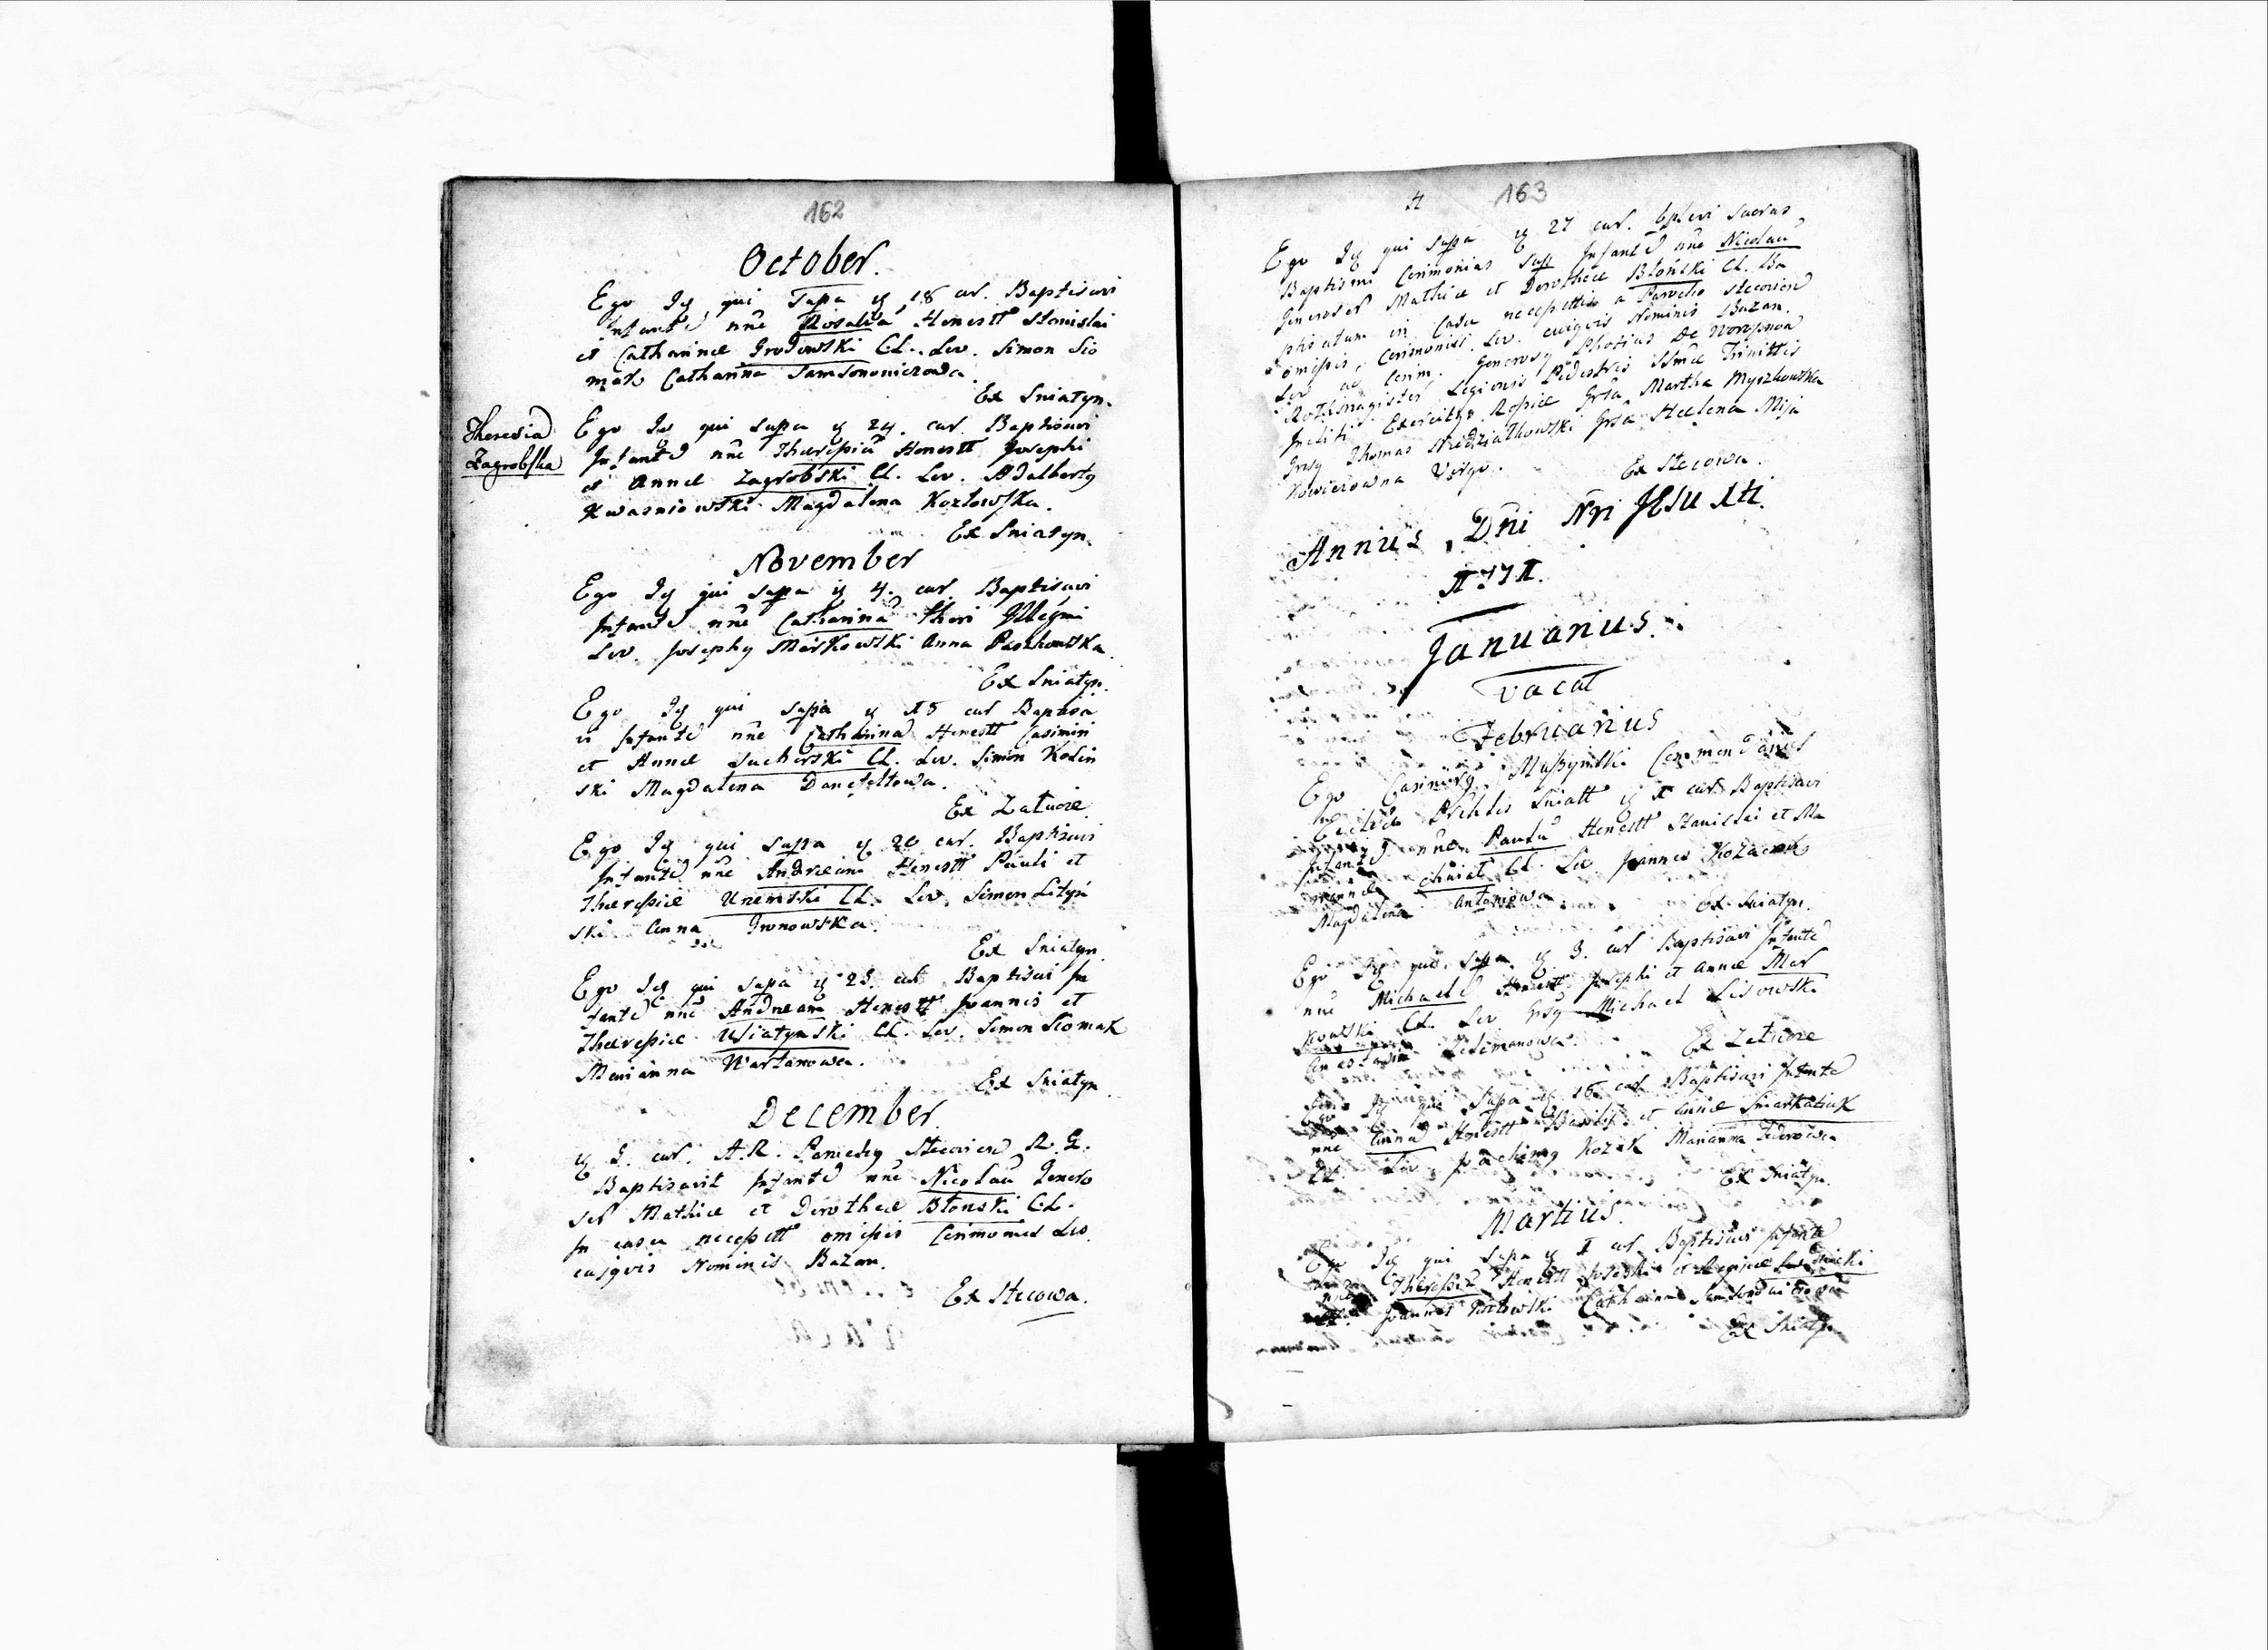 162
October.
Ego Id qui Supa d 18 cur. Baptisavi
Infante nne Rosalia Honestt Stanislai
et Catharinæ Grodowski CL. Lev. Simon Sio
mak Catharina Samsonowiczowa.
Ex Sniatyn.
Theresia
Zagrobska
Ego Id qui supa d 24. cur. Baptisavi
Infante nne Theressia Honestt Josephi
et Annæ Zagrobski CL. Lev. Adalbertg
Kwasniowski Magdalena Kozłowska.
Ex Sniatyn.
November
Ego Id qui supa d 4. cur. Baptisavi
Infante nne Catharina thori
Lev. Josephg Markowski Anna Paszkowska
Ex Sniatyn.
Ego Id qui supa d 15 cur Baptisa
vi Infante nne Catharina Honestt Casimiri
et Annæ Sucherski CL. Lev. Simon Kosin
ski Magdalena
Ex Załucze
Ego Id qui supa d 20 cur. Baptisavi
Infante nne Andream Honestt Pauli et
Theressiæ CL. Lev. Simon Lityn
ski Anna Gronowska.
Ex Sniatyn.
Ego Id qui supa d 25. cur. Baptisavi In
fante nne Andream Honestt Joannis et
Theressiæ Usiatynski CL. Lev. Simon Siomak
Marianna Wartanowa.
Ex Sniatyn
December.
d 3. cur. A.R. Stecovien R. G.
Baptisavit Infante nne Nicolau Genero
sor Mathiæ et Dorotheæ Błonski CL.
In casu necesstt omissis Cerimoniis Lev.
cujqvis Nominis Bazan.
Ex Stecowa.
163
Ego Id qui supa d 27 cur. Splevi sacras
Baptismi Cerimonias sup Infante nne Nicolau
Generosor Mathiæ et Dorotheæ Błoński CL. Ba
ptisatum in Casu necessttis a Parocho Stecovien
omissis Cerimoniis. Lev. cuiqvis Nominis Bazan.
Lev ad Cerim. Generosg Photius De
Rothmagister Legionis Pedestris SSmæ Trinittis
Incliti Exercitg Rossiæ Grsa Martha Myszkowska
Grsg Thomas Niedziałkowski Grsa Helena Misia
kowiczowna Virgo.
Ex Stecowa.
Annus Dni Nri JESU Xti.
1771.
Januarius.
vacat
Februarius
Ego Casimirg Commendarius
Eccliæ Sniatt d 1 cur. Baptisavi
Infante nne Paulu Honestt Stanislai et Ma
riannæ CL. Lev Joannes Kozacek
Magdalena Antoniowa
Ex Sniatyn.
Ego Id qui supa d 3. cur Baptisavi Infante
nne Michael Honestt Josephi et Annæ Mar
kowski CL. Lev Grsg Michael Lisowski
Anastasia
Ex Załucze
Ego Id qui Supa d 16 cur Baptisavi Infante
nne Anna Honestt Basilij et Annæ Smarkatiuk
CL. Lev Joachimg Kozak Marianna Fedorowa
Ex Sniatyn.
Martius
Ego Id qui Supa d 1 cur Baptisavi Infante
nne Theressia Honestt Josephi et
CL. Joannes Catharina Samsonowiczowa
Ex Sniatyn